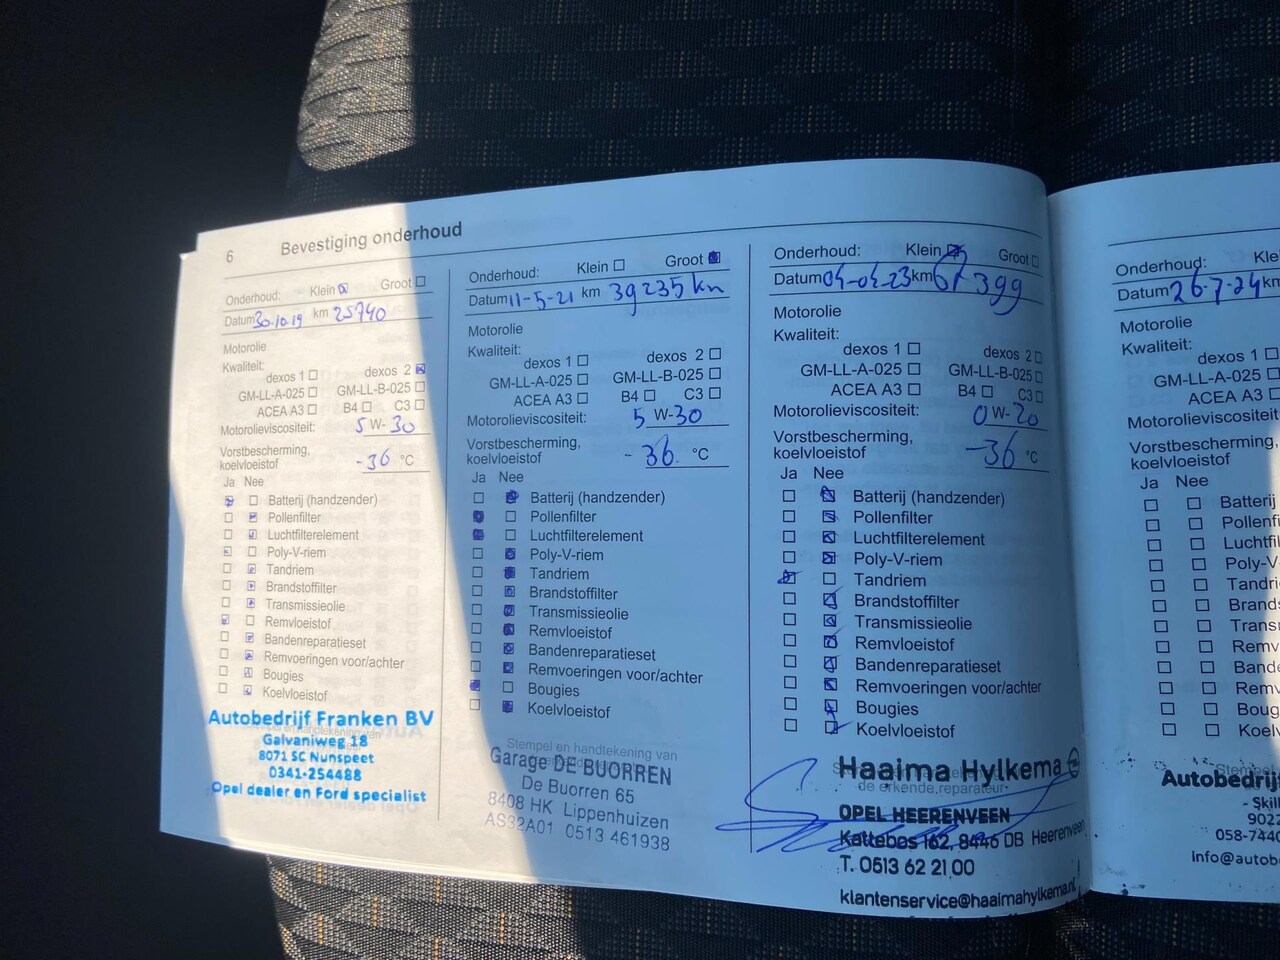 6 Bevestiging onderhoud
Onderhoud: Klein Groot
Datum 30-10-19 km 25740
Motorolie
Kwaliteit:
dexos 1 dexos 2
GM-LL-A-025 GM-LL-B-025
ACEA A3 B4 C3
Motorolieviscositeit: 5 W-30
Vorstbescherming,
koelvloeistof -36 °C
Ja Nee
Batterij (handzender)
Pollenfilter
Luchtfilterelement
Poly-V-riem
Tandriem
Brandstoffilter
Transmissieolie
Remvloeistof
Bandenreparatieset
Remvoeringen voor/achter
Bougies
Koelvloeistof
Autobedrijf Franken BV
Galvaniweg 18
8071 SC Nunspeet
0341-254488
Opel dealer en Ford specialist
Onderhoud: Klein Groot
Datum 11-5-21 km 39235 km
Motorolie
Kwaliteit:
dexos 1 dexos 2
GM-LL-A-025 GM-LL-B-025
ACEA A3 B4 C3
Motorolieviscositeit: 5 W-30
Vorstbescherming,
koelvloeistof -36 °C
Ja Nee
Batterij (handzender)
Pollenfilter
Luchtfilterelement
Poly-V-riem
Tandriem
Brandstoffilter
Transmissieolie
Remvloeistof
Bandenreparatieset
Remvoeringen voor/achter
Bougies
Koelvloeistof
Stempel en handtekening van
Garage DE BUORREN
De Buorren 65
8408 HK Lippenhuizen
AS32A01 0513 461938
Onderhoud: Klein Groot
Datum 04-04-23 km 399
Motorolie
Kwaliteit:
dexos 1 dexos 2
GM-LL-A-025 GM-LL-B-025
ACEA A3 B4 C3
Motorolieviscositeit: 0 W-20
Vorstbescherming,
koelvloeistof -36 °C
Ja Nee
Batterij (handzender)
Pollenfilter
Luchtfilterelement
Poly-V-riem
Tandriem
Brandstoffilter
Transmissieolie
Remvloeistof
Bandenreparatieset
Remvoeringen voor/achter
Bougies
Koelvloeistof
Haaima Hylkema
de erkende reparateur
OPEL HEERENVEEN
Kattebos 162, 8446 DB Heerenveen
T. 0513 62 21 00
klantenservice@haaimahylkema.nl
Onderhoud: Kle
Datum 26-7-24 km
Motorolie
Kwaliteit:
dexos 1
GM-LL-A-025
ACEA A3
Motorolieviscositeit:
Vorstbescherming,
koelvloeistof
Ja Nee
Batterij
Pollenf
Luchtfil
Poly-V-
Tandri
Brands
Transm
Remvl
Bande
Remv
Boug
Koelv
Autobedrij
- Skil
9022
058-744
info@autobe